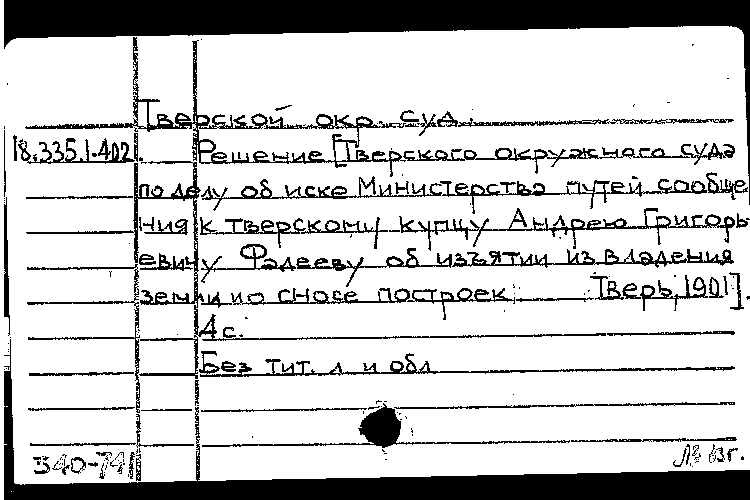 Тверской окр. суд.
18.335.1.402. Решение [Тверского окружного суда
по делу об иске Министерства путей сообще
ния к тверскому купцу Андрею Григорь
евичу Фадееву об изъятии из владения
земли и о сносе построек. Тверь, 1901].
4 с.
Без тит. л и обл
340-741